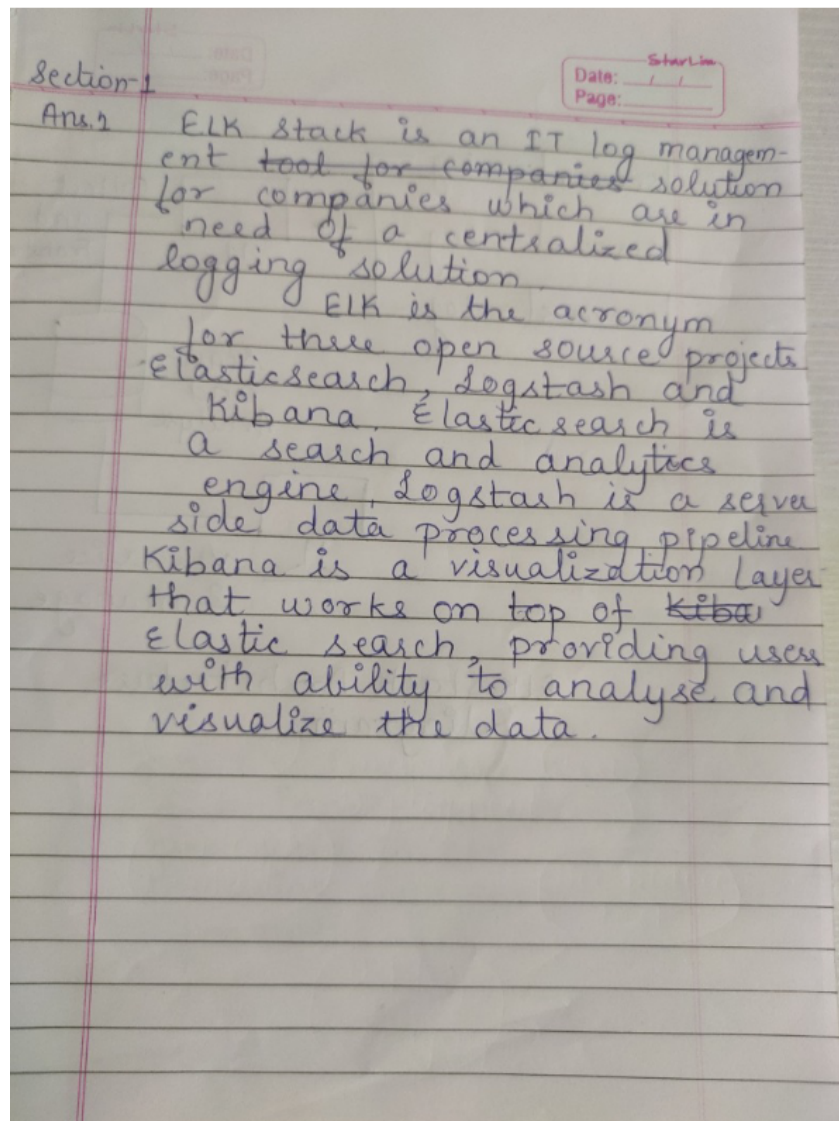 StarLim
Date: / /
Page:
Section-1
Ans.2 ELK stack is an IT log managem-
ent tool for companies solution
for companies which are in
need of a centralized
logging solution.
ELK is the acronym
for three open source projects
Elasticsearch, Logstash and
Kibana. Elasticsearch is
a search and analytics
engine. Logstash is a server
side data processing pipeline
Kibana is a visualization layer
that works on top of Kiba
Elastic search, providing users
with ability to analyse and
visualize the data.